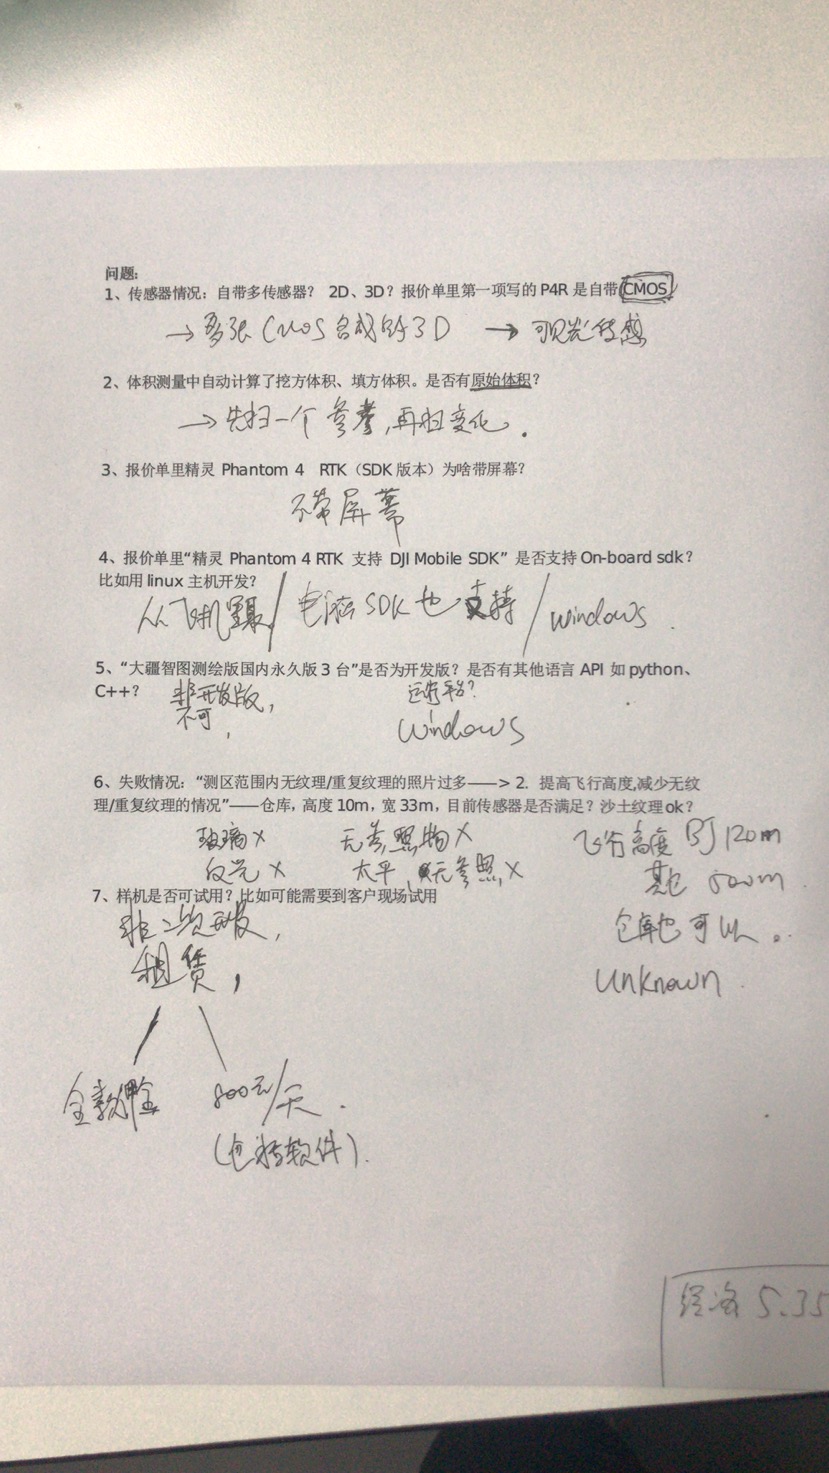 问题:
1、传感器情况：自带多传感器？ 2D、3D？报价单里第一项写的 P4R 是自带 CMOS
→ 多张 CMOS 合成的 3D → 可见光传感
2、体积测量中自动计算了挖方体积、填方体积。是否有原始体积？
→ 先扫一个参考，再扫变化.
3、报价单里精灵 Phantom 4 RTK（SDK 版本）为啥带屏幕？
不带屏幕
4、报价单里“精灵 Phantom 4 RTK 支持 DJI Mobile SDK” 是否支持 On-board sdk？
比如用 linux 主机开发？
从飞机 / SDK 也支持 / windows .
5、“大疆智图测绘版国内永久版 3 台”是否为开发版？是否有其他语言 API 如 python、
C++？ 非开发版, 运行平台?
不可, Windows
6、失败情况：“测区范围内无纹理/重复纹理的照片过多——> 2. 提高飞行高度,减少无纹
理/重复纹理的情况”——仓库，高度 10m，宽 33m，目前传感器是否满足？沙土纹理 ok？
玻璃 X 无参照物 X 飞行高度 BJ 120m
反光 X 太平, 无参照, X 其它 500m
7、样机是否可试用？比如可能需要到客户现场试用
非二次开发, 仓库也可以。
租赁, Unknown.
全款押金 800元/天.
(包括软件).
5.35